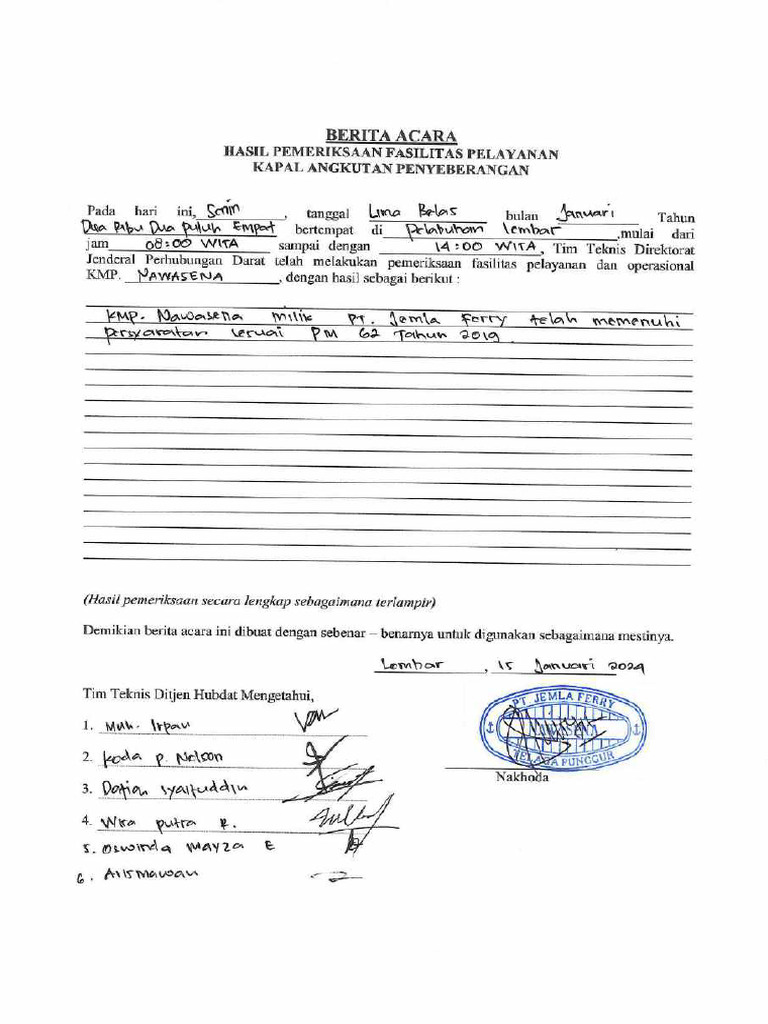 BERITA ACARA
HASIL PEMERIKSAAN FASILITAS PELAYANAN
KAPAL ANGKUTAN PENYEBERANGAN
Pada hari ini, Senin, tanggal Lima Belas bulan Januari Tahun
Dua Ribu Dua Puluh Empat bertempat di Pelabuhan Lembar, mulai dari
jam 08:00 WITA sampai dengan 14:00 WITA, Tim Teknis Direktorat
Jenderal Perhubungan Darat telah melakukan pemeriksaan fasilitas pelayanan dan operasional
KMP. NAWASENA, dengan hasil sebagai berikut :
KMP. Nawasena milik PT. Jemla Ferry telah memenuhi
persyaratan sesuai PM 62 Tahun 2019.
(Hasil pemeriksaan secara lengkap sebagaimana terlampir)
Demikian berita acara ini dibuat dengan sebenar – benarnya untuk digunakan sebagaimana mestinya.
Lembar, 15 Januari 2024
Tim Teknis Ditjen Hubdat Mengetahui,
PT. JEMLA FERRY
TELAGA PUNGGUR
Nakhoda
1. Muh. Irpan
2. Koda P. Nelson
3. Dofian Syaifuddin
4. Wira Putra R.
5. Oswinda Mayza E
6. Arismawan